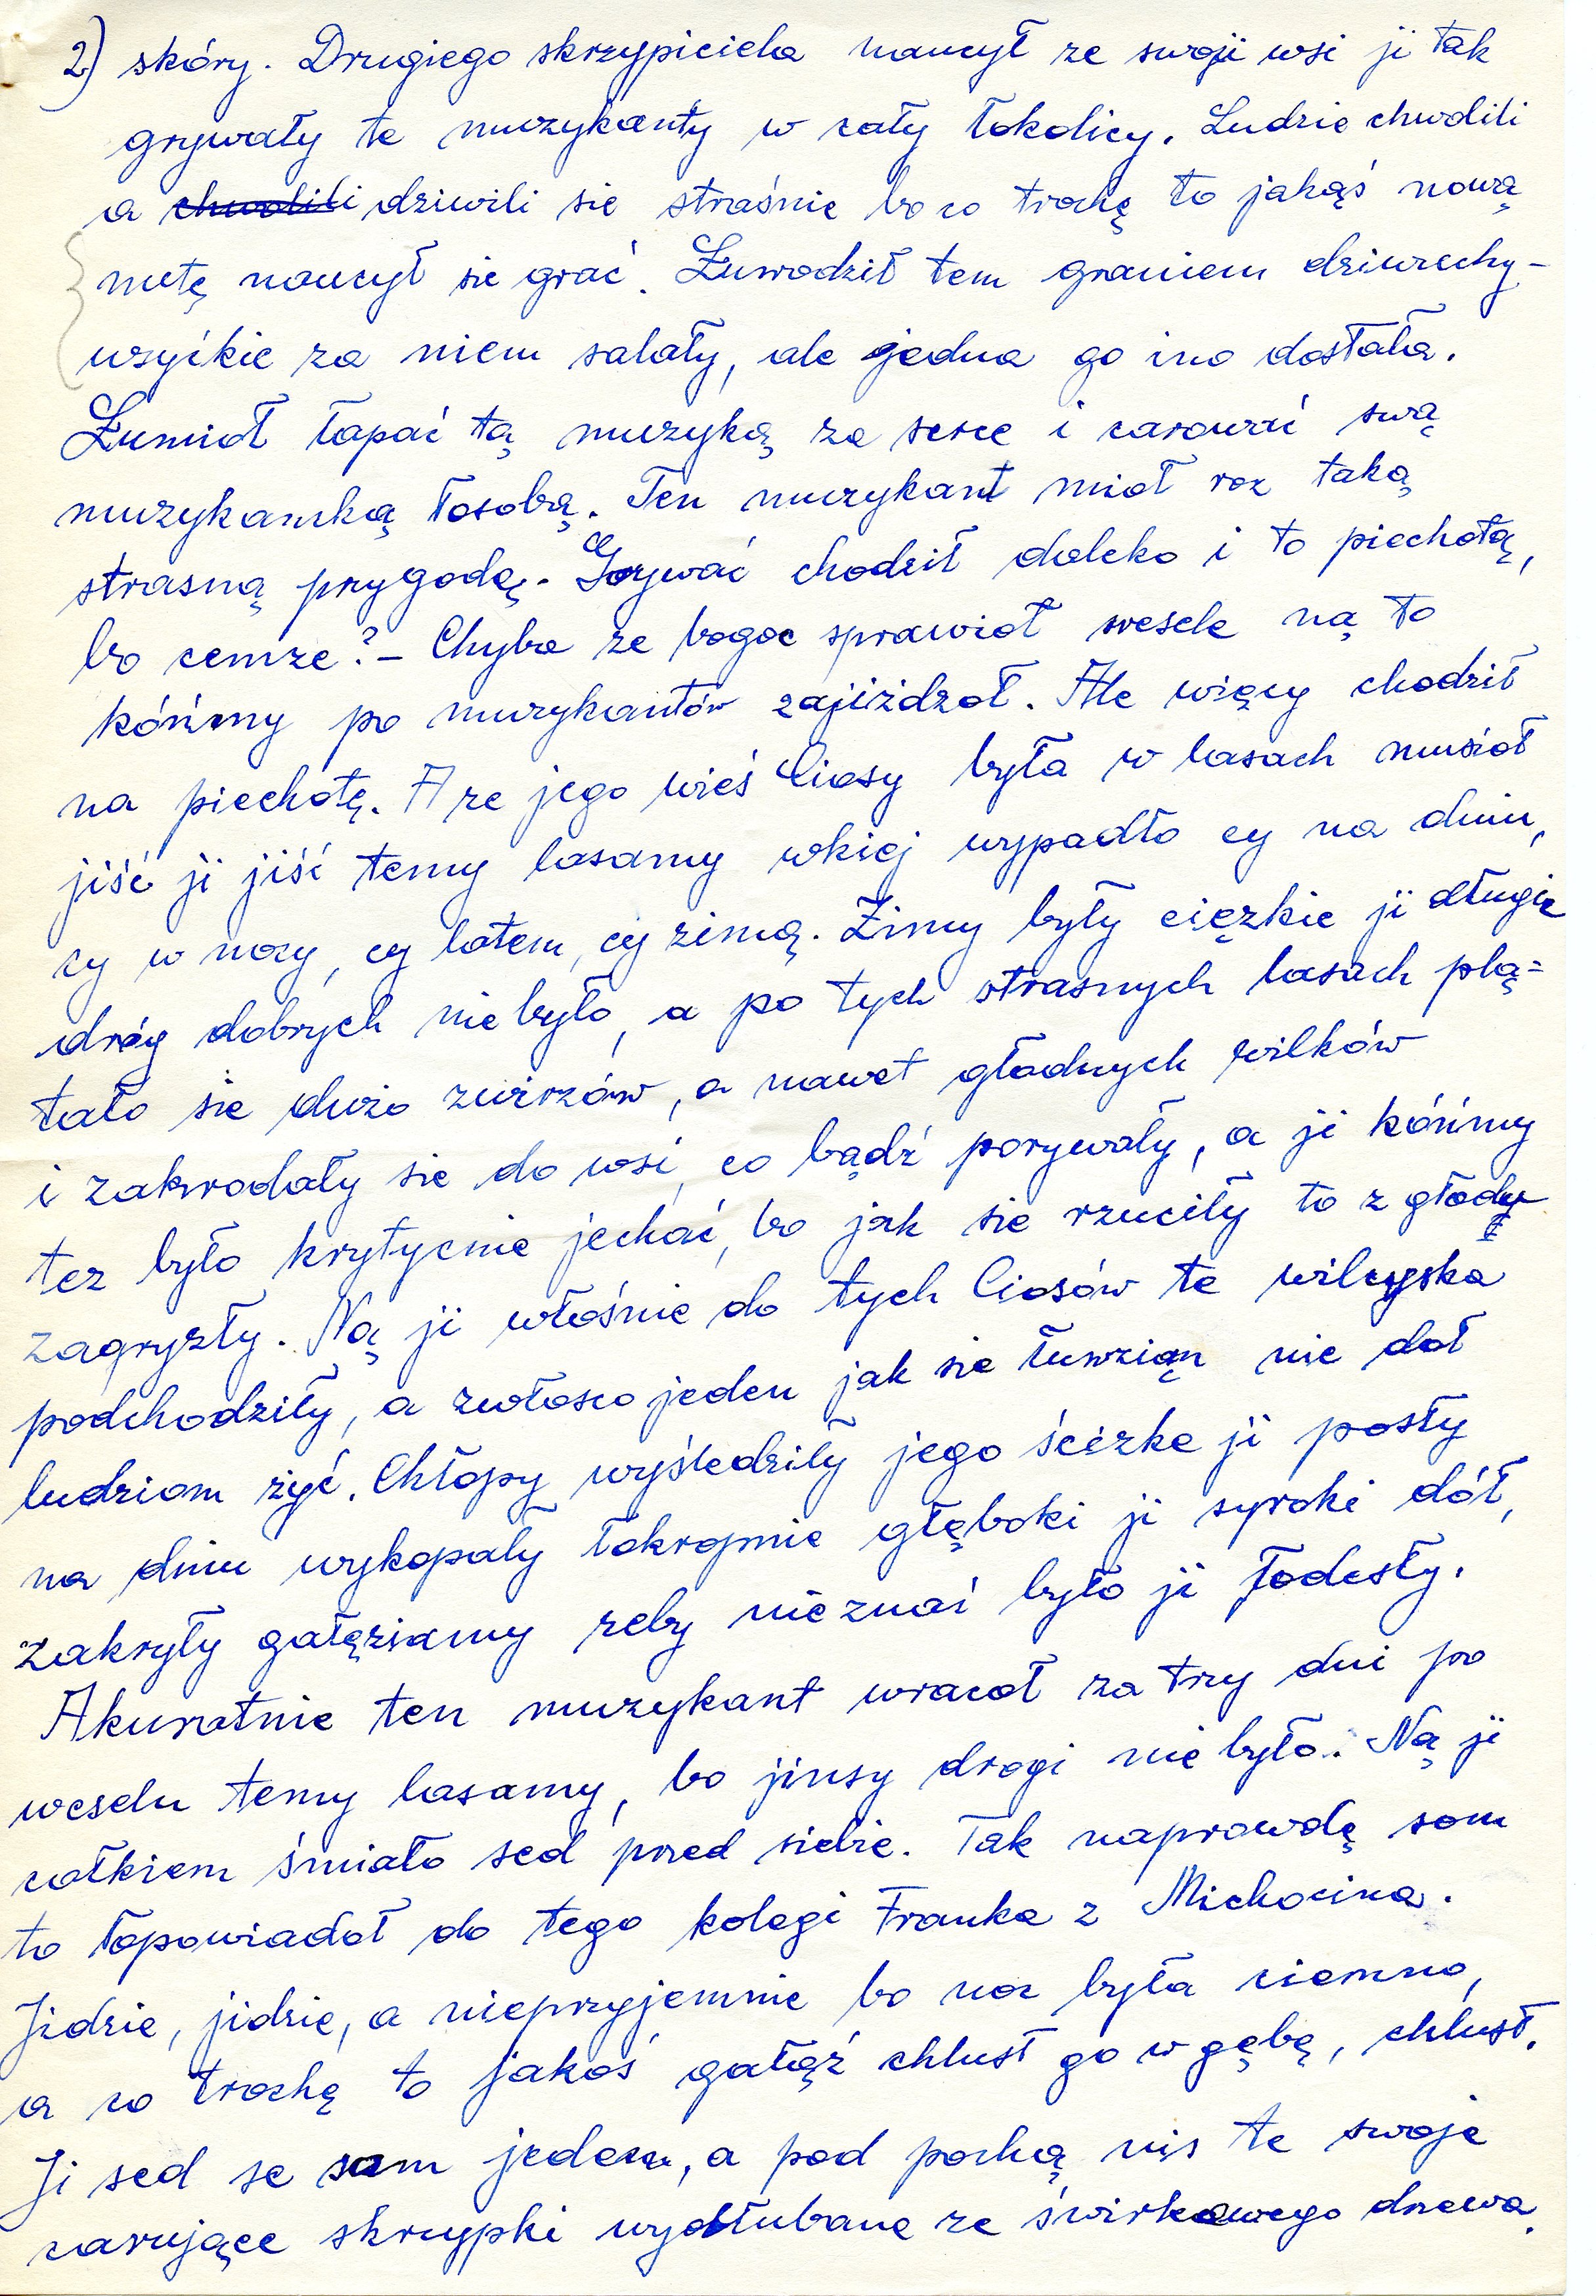 2) skóry. Drugiego skrzypiciela naucył ze swoji wsi ji tak
grywały te muzykanty w cały łokolicy. Ludzie chwolili
a chwolili dziwili sie straśnie bo co trochę to jakąś nową
nutę naucył sie grać. Łuwodził tem graniem dziwechy-
wszyćkie za niem salały, ale jedna go ino dostała.
Łumioł łapać tą muzyką za serce i carować swą
muzykancką łosobą. Ten muzykant mioł roz taką
strasną przygodę. Grywać chodził daleko i to piechotą,
bo cemze? - Chyba ze bogoc sprawioł wesele ną to
kóńmy po muzykantów zajiżdzoł. Ale więcy chodził
na piechotę. A ze jego wieś Ciosy była w lasach musioł
jiść ji jiść temy lasamy wkiej wypadło cy na dniu,
cy w nocy, cy latem, cy zimą. Zimy były cięzkie ji długie
dróg dobrych nie było, a po tych strasnych lasach plą=
tało sie duzo zwirzów, a nawet głodnych wilków
i zakrodały sie do wsi, co bądź porywały, a ji kóńmy
tez było krytycnie jechać, bo jak sie rzuciły to z głodu
zagryzły. Ną ji włośnie do tych Ciosów te wilcyska
podchodziły, a zwłasco jeden jak sie łuwzian nie doł
ludziom żyć. Chłopy wyśledziły jego ściżke ji posły
na dniu wykopały łokropnie głęboki ji syroki dół,
zakryły gałęziamy zeby nie znać było ji łodesły.
Akuratnie ten muzykant wracoł za trzy dni po
weselu temy lasamy, bo jinsy drogi nie było. Ną ji
całkiem śmiało sed przed siebie. Tak naprowdę som
to łopowiadoł do tego kolegi Franka z Michocina.
Jidzie, jidzie, a nieprzyjemnie bo noc była ciemno,
a co trochę to jakoś gałąź chlust go w gębę, chlust.
Ji sed se sam jeden, a pod pochą nis te swoje
carujące skrzypki wydłubane ze świrkowego drzewa.